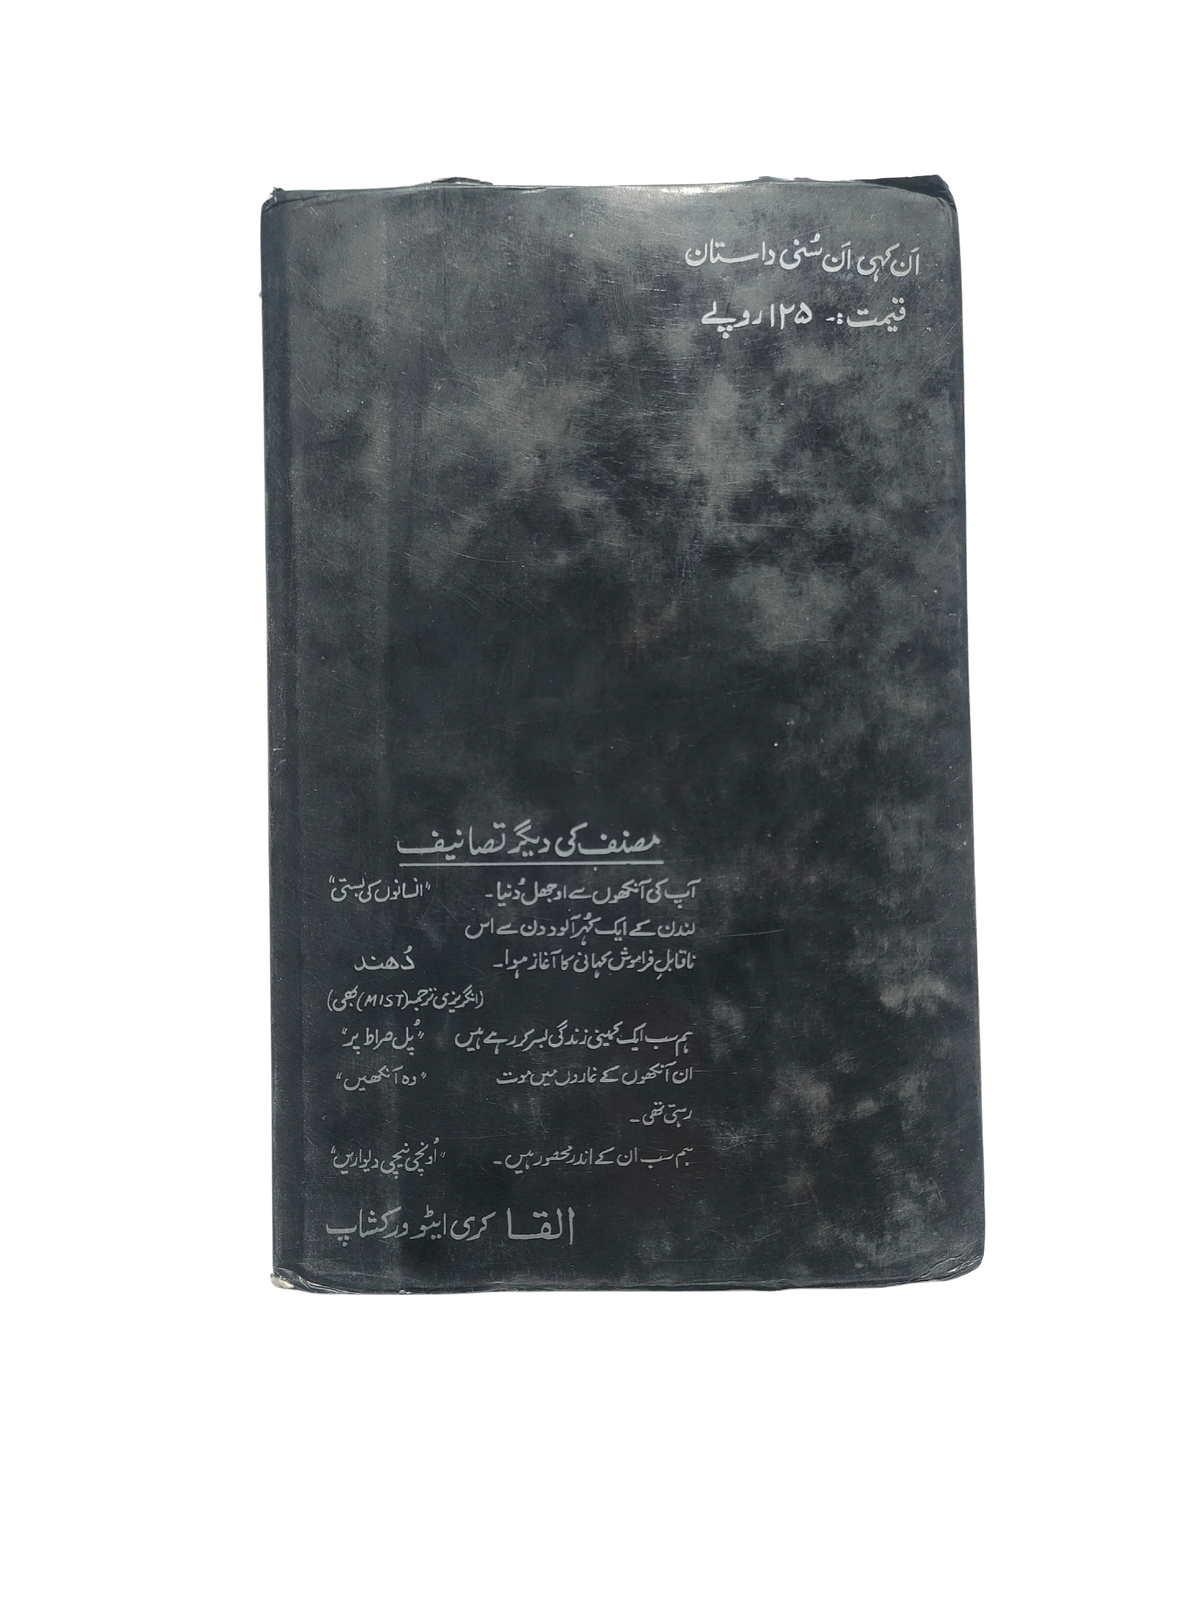 اَن کہی اَن سُنی داستان
قیمت:۔ ۱۲۵ روپے
مصنف کی دیگر تصانیف
آپ کی آنکھوں سے اوجھل دُنیا۔ "انسانوں کی بستی"
لندن کے ایک کُہر آلود دن سے اس
ناقابلِ فراموش کہانی کا آغاز ہوا۔ دُھند
(انگریزی ترجمہ (MIST) بھی)
ہم سب ایک کمینی زندگی بسر کر رہے ہیں "پُل صراط پر"
ان آنکھوں کے غاروں میں موت "وہ آنکھیں"
رہتی تھی۔
ہم سب ان کے اندر محصور ہیں۔ "اُونچی نیچی دیواریں"
القا کری ایٹو ورکشاپ